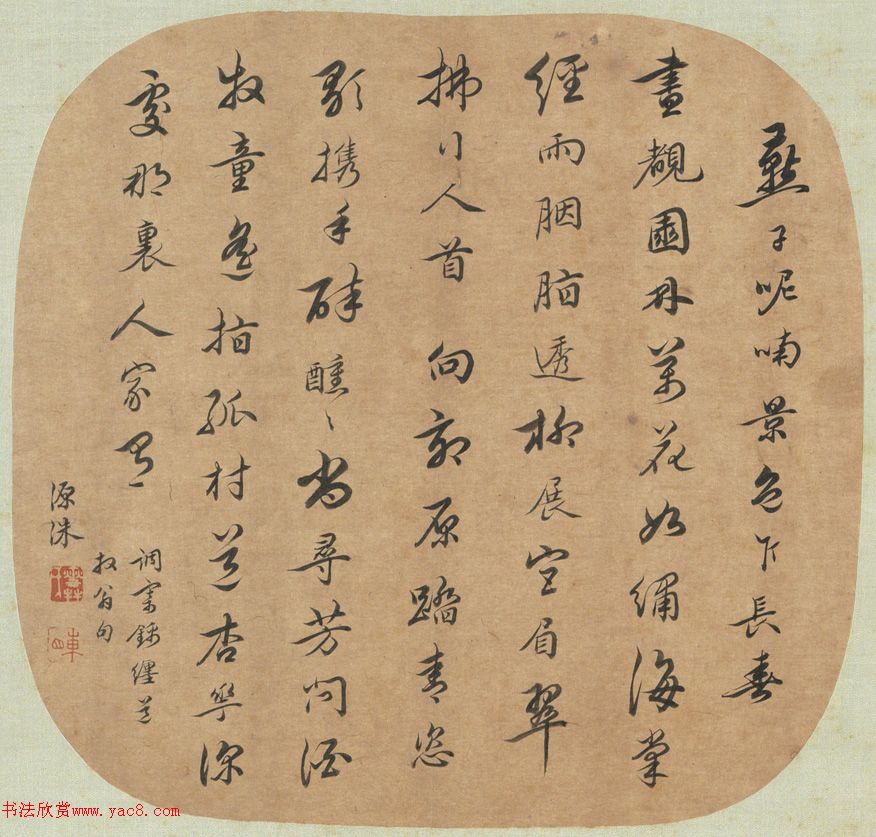 燕子呢喃景色乍長春
晝覩園林萬花如繡海棠
經雨胭脂透柳展宮眉翠
拂行人首向郊原踏青恣
歌携手醉醺〻尚尋芳問酒
牧童遙指孤村道杏花深
處那裏人家有
調寄錦纏道
翁句
源洙
书法欣赏www.yac8.com